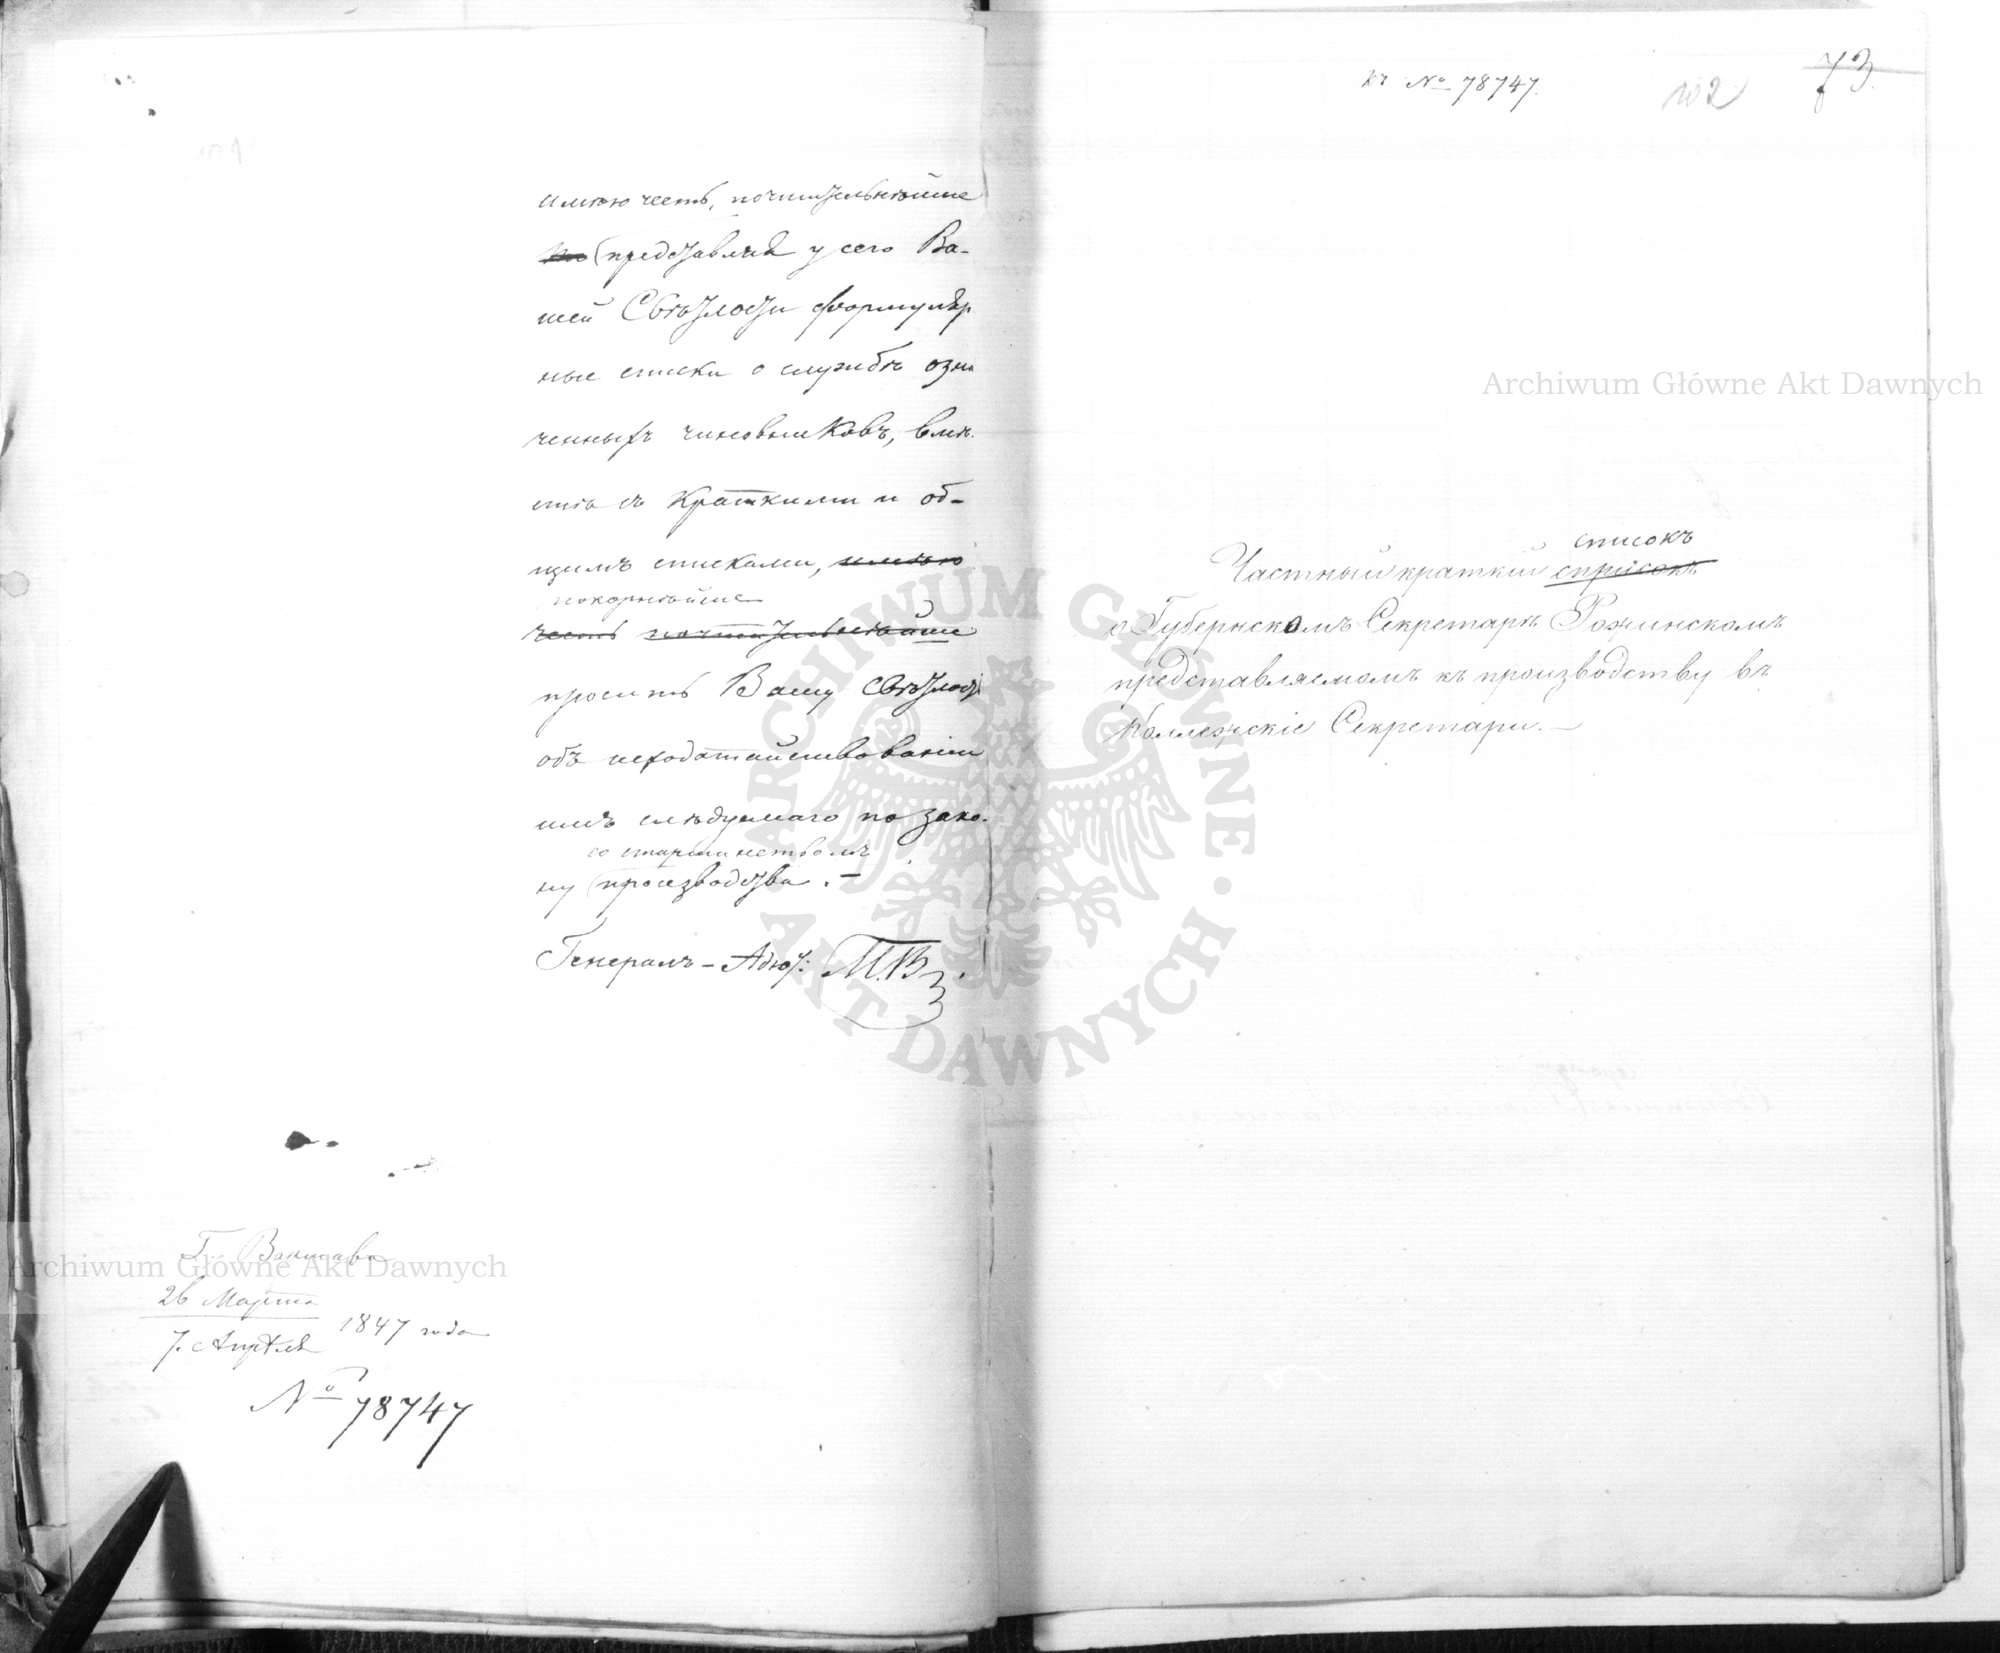 имѣю честь, почтительнѣйше
представляя у сего Ва-
шей Свѣтлости формуляр
ные списки о службѣ озна
ченныхъ чиновниковъ, вмѣ-
стѣ съ краткими и об-
щимъ списками, имѣю
покорнѣйше
честь почтительнѣйше
просить Вашу Свѣтлость
объ исходатайствованіи
имъ слѣдуемаго по зако-
со старшинствомъ
ну производства. —
Генералъ-Адъют:
Г. Варшава
26 Марта
7. Апрѣля 1847 года
№ 78747
къ № 78747.
102
73.
списокъ
Частный краткій списокъ
о Губернскомъ Секретарѣ Рожинскомъ
представляемомъ къ производству въ
Коллежскіе Секретари. —
Archiwum Główne Akt Dawnych
Archiwum Główne Akt Dawnych
ARCHIWUM GŁÓWNE AKT DAWNYCH